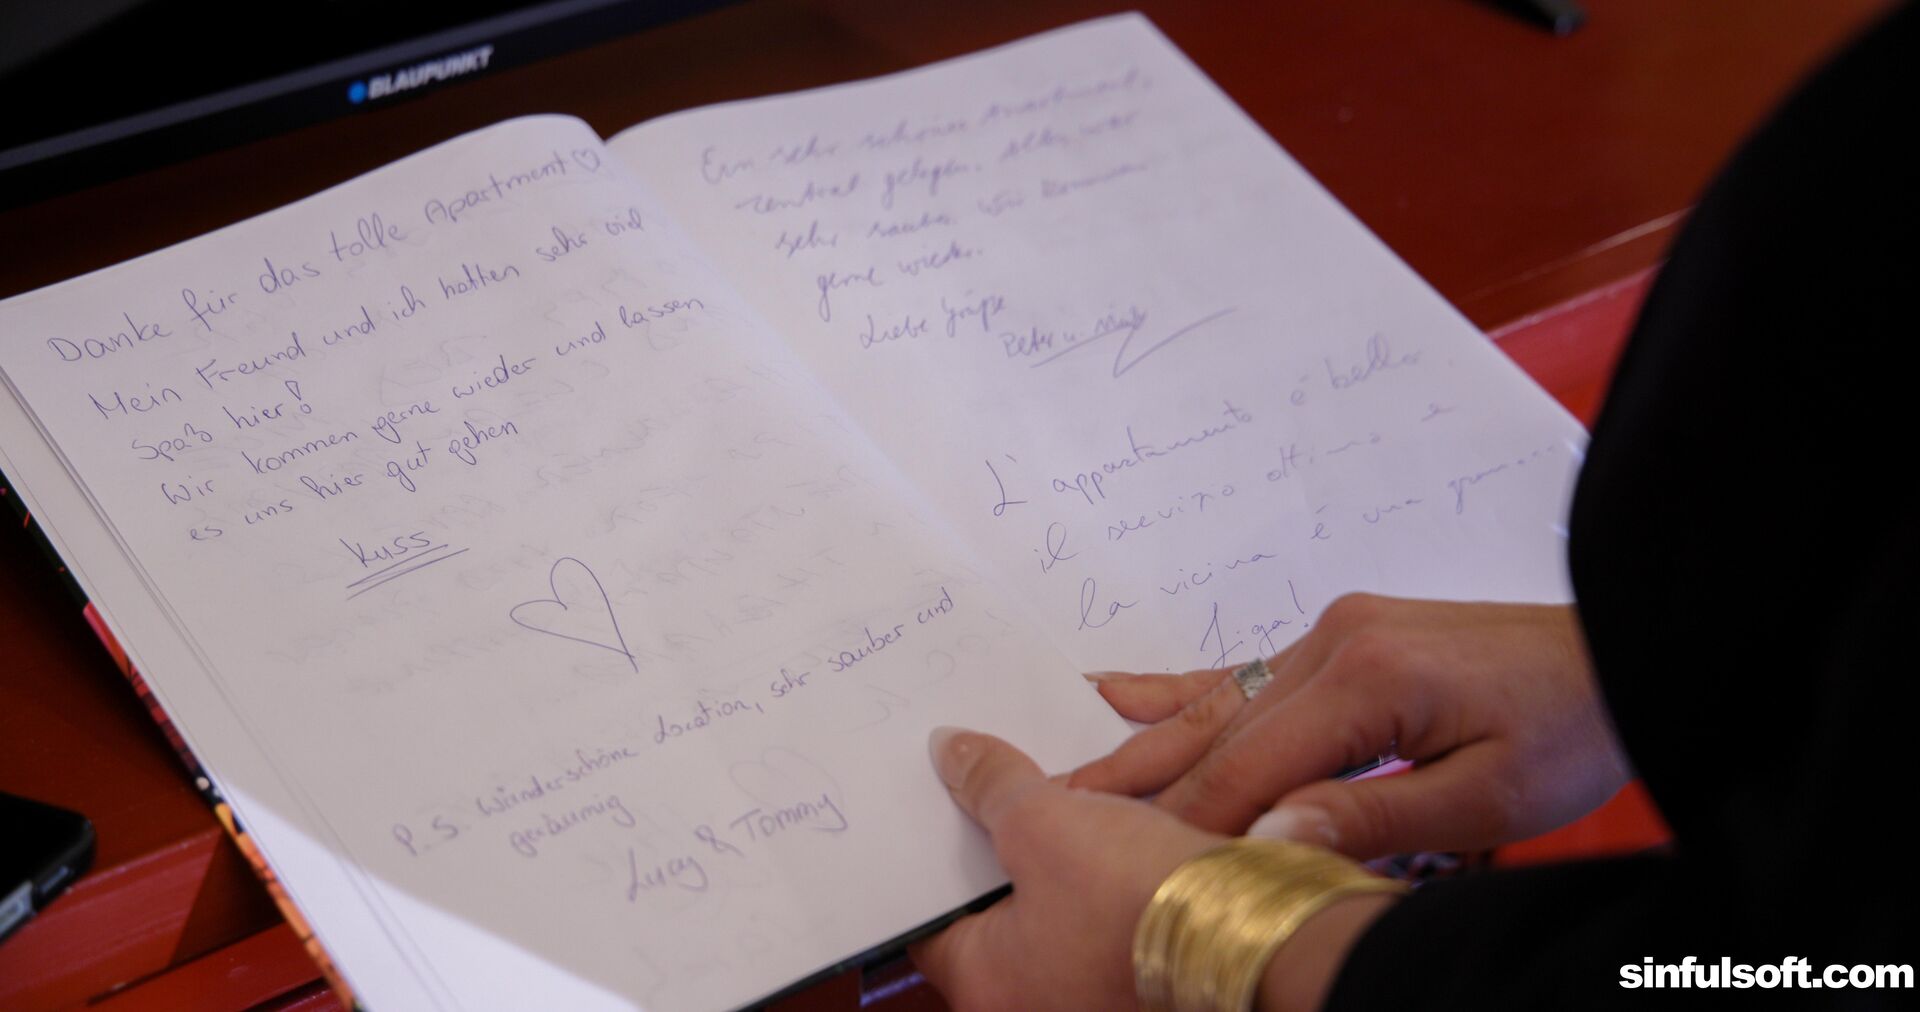 BLAUPUNKT
Danke für das tolle Apartment ♡
Mein Freund und ich hatten sehr viel
Spaß hier!
Wir kommen gerne wieder und lassen
es uns hier gut gehen
Kuss
P.S. Wunderschöne Location, sehr sauber und
geräumig
Lucy & Tommy
Ein sehr schönes Apartment,
zentral gelegen.
sehr sauber. Wir kommen
gerne wieder.
Liebe Grüße
Peter u.
L'appartamento é bello.
il servizio ottimo e
la vicina é una
figa!
sinfulsoft.com